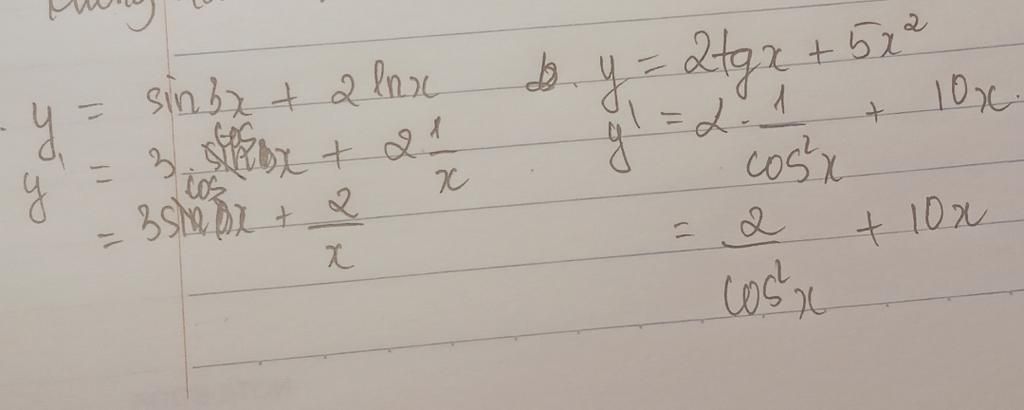 y = sin3x + 2 lnx
y' = 3. cos x + 2 1/x
= 3 cos x + 2/x
b. y = 2tgx + 5x²
y' = 2 · 1/cos²x + 10x.
= 2/cos²x + 10x